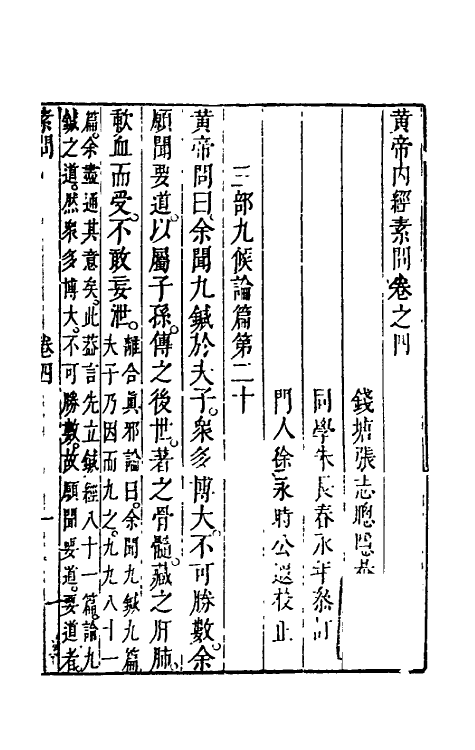 黄帝内經素問卷之四
錢塘張志聰隱菴
同學朱長春永年叅訂
門人徐永時公遐校正
三部九候論篇第二十
黃帝問曰余聞九鍼於夫子。衆多博大。不可勝數。余
願聞要道。以屬子孫。傳之後世。著之骨髓。藏之肝肺。
歃血而受。不敢妄泄。離合眞邪論曰。余聞九鍼九篇
夫子乃因而九之。九九八十一
篇。余盡通其意矣。此葢言先立鍼經八十一篇。論九
鍼之道。然衆多博大。不可勝數。故願聞要道。要道者。
素問 卷四 一